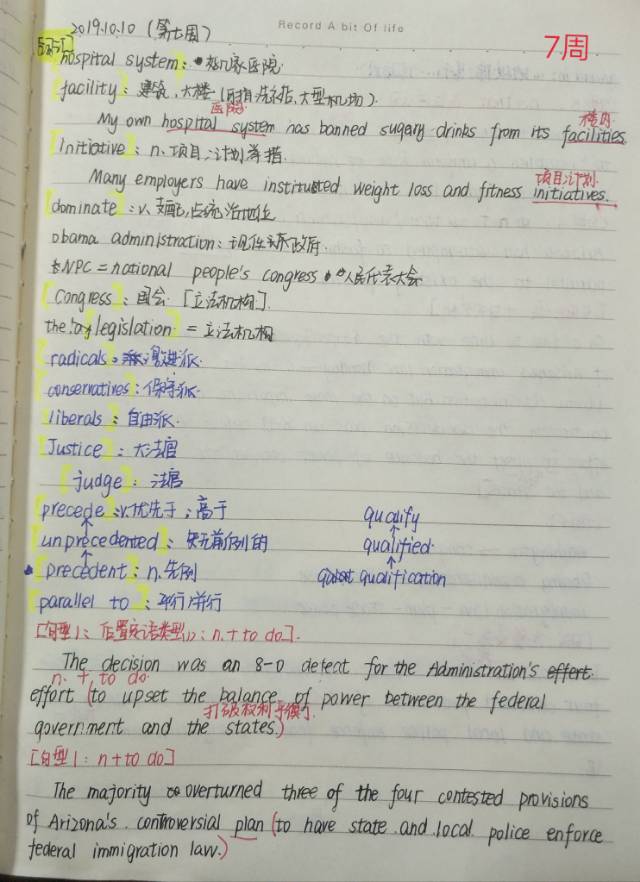 Record A bit Of life
2019.10.10 (第七周)
7周
hospital system: 一家医院
facility: 建筑、大楼 (大型机场).
医院
楼内
My own hospital system has banned sugary drinks from its facilities
Initiative: n. 项目;计划 举措.
项目;计划
Many employers have instituted weight loss and fitness initiatives.
dominate: v. 支配,占统治地位
Obama administration: 现任 政府.
NPC = national people's congress 人民代表大会
Congress: 国会 [立法机构].
the legislation = 立法机构
radicals: 激进派.
conservatives: 保守派.
liberals: 自由派.
Justice: 大法官
judge: 法官
precede: v. 优先于;高于
qualify
unprecedented: 史无前例的
qualified.
precedent: n. 先例
qualification
parallel to: 平行/并行
[句型1: 后置定语类型1): n. + to do].
The decision was an 8-0 defeat for the Administration's effort
n. + to do
effort (to upset the balance of power between the federal
打破权利平衡
government and the states.)
[句型1: n + to do]
The majority overturned three of the four contested provisions
of Arizona's controversial plan (to have state and local police enforce
federal immigration law.)